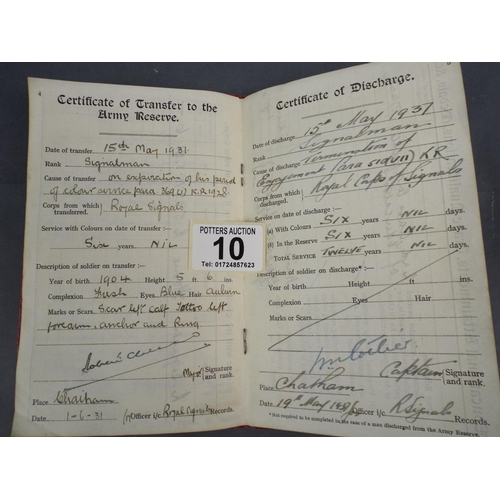 4
Certificate of Transfer to the
Army Reserve.
Date of transfer 15th May 1931
Rank Signalman
Cause of transfer on expiration of his period
of colour service para 369(i) K.R 1928
Corps from which transferred. Royal Signals
Service with Colours on date of transfer :
Six years. Nil
Description of soldier on transfer :
Year of birth 1904 Height 5 ft. 6 ins.
Complexion Fresh Eyes Blue Hair Auburn
Marks or Scars Scar left calf Tattoo left
forearm, anchor and Ring
Signature and rank.
Place Chatham
Date 1-6-31 Officer i/c Royal Signals Records.
POTTERS AUCTION
10
Tel: 01724857623
5
Certificate of Discharge.
Date of discharge 15th May 1937
Rank Signalman
Cause of discharge Termination of
Engagement (para KR
Corps from which discharged Royal Corps of Signals
Service on date of discharge :
(a) With Colours SIX years NIL days.
(b) In the Reserve SIX years NIL days.
TOTAL SERVICE TWELVE years NIL days.
Description of soldier on discharge* :
Year of birth Height ft ins.
Complexion Eyes Hair
Marks or Scars
Captain Signature and rank.
Place Chatham
Date 19th May Officer i/c R Signals Records.
* Not required to be completed in the case of a man discharged from the Army Reserve.